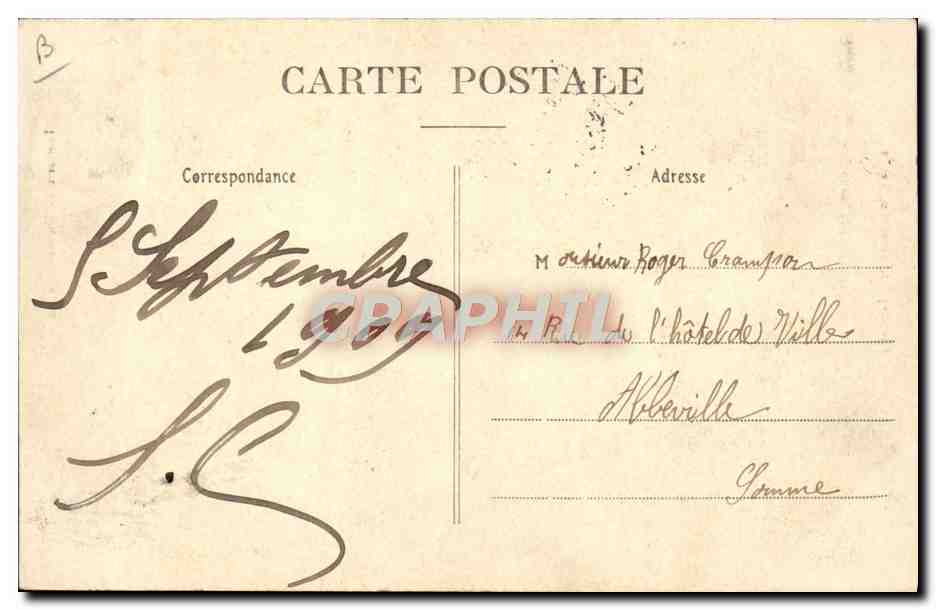 B
CARTE POSTALE
Correspondance
5 Septembre
1909
S. C
Adresse
Monsieur Roger Crampon
14 Rue de l'hôtel de Ville
Abbeville
Somme
CPAPHIL